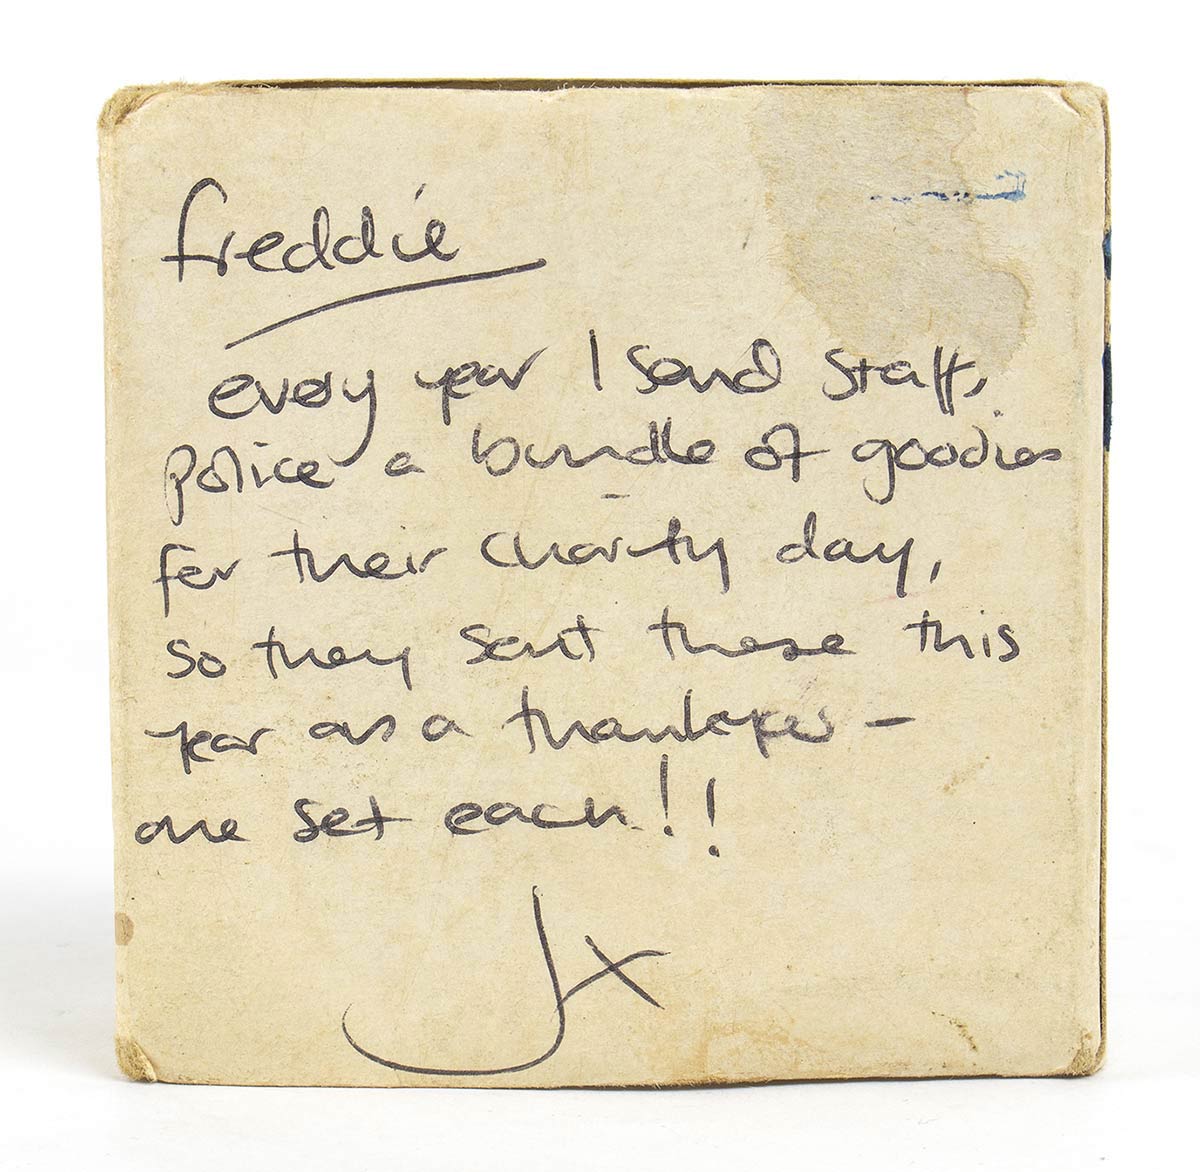 freddie
every year I send staff,
police a bundle of goodies
for their charity day,
so they sent these this
year as a thankyou -
one set each!!
Jx